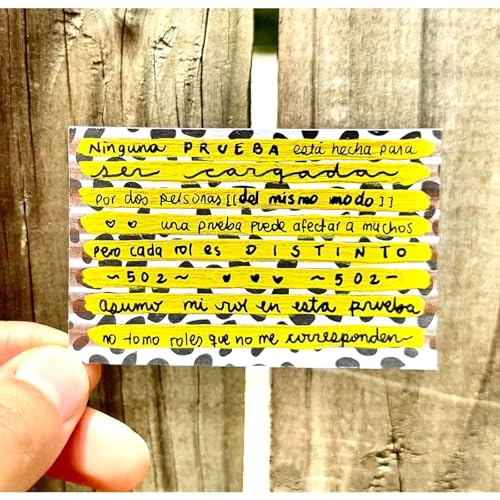 Ninguna PRUEBA está hecha para
ser cargada
por dos personas [[del mismo modo]]
♡ ♡ una prueba puede afectar a muchos
pero cada rol es DISTINTO
~502~ ♥ ♥ ♥ ~502~
asumo mi rol en esta prueba
no tomo roles que no me corresponden